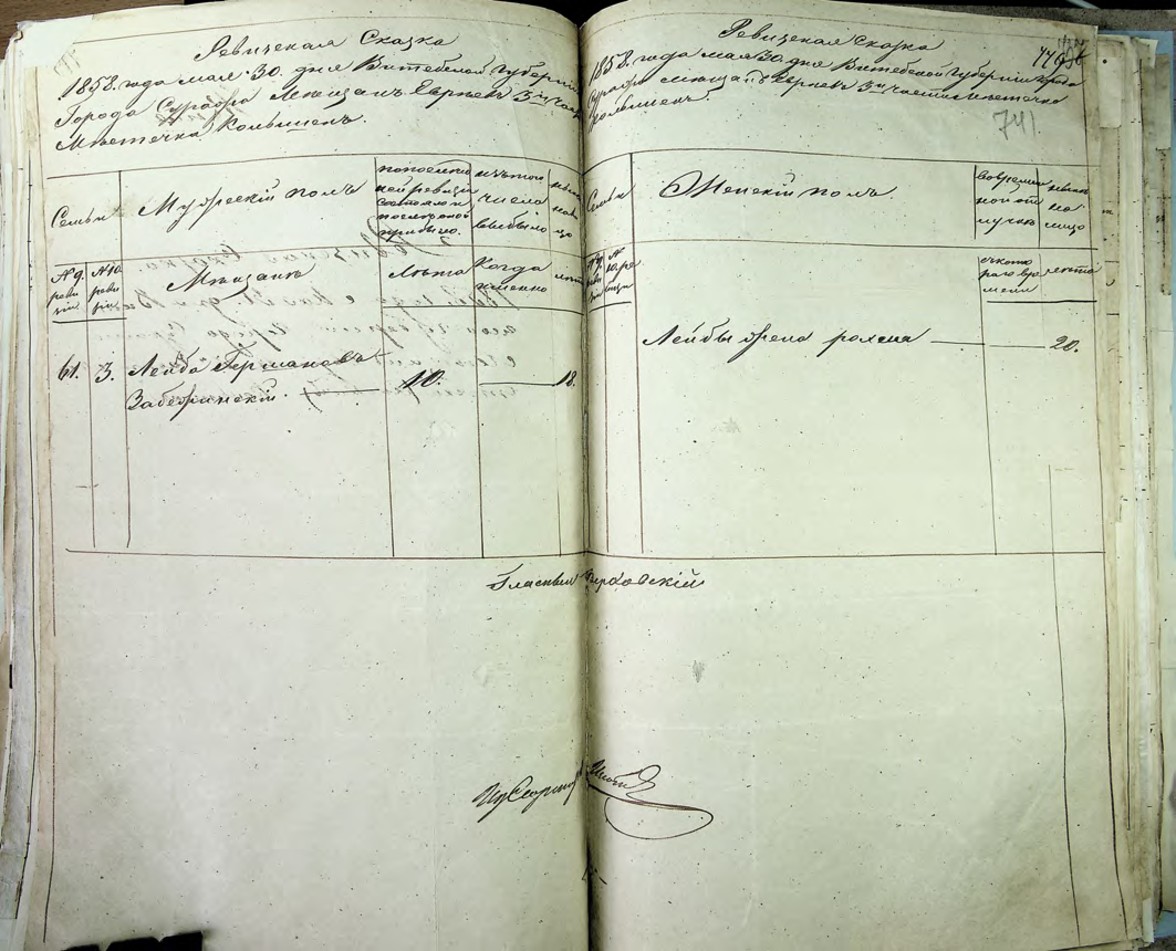 Ревизская Сказка
1858. года мая 30. дня Витебской Губерніи
Города Суража Мѣщанъ Евреевъ 3й части
Мѣстечка Колышекъ.
Семьи
Мужескій полъ
по последней ревизіи состояло и после оной прибыло.
изъ того числа выбыло
ныне на лицо
№ 9. ревизіи
№ 10. ревизіи
Мѣщане
Лѣта
Когда именно
лѣта
61. 3. Лейба Германовъ
Забежинскій. 10. 18.
Ревизская Сказка
1858. года мая 30. дня Витебской Губерніи города
Суража Мѣщанъ Евреевъ 3й части Мѣстечка
Колышекъ.
741
Семьи
Женскій полъ
во временной отлучке
ныне на лицо
№ 9. ревизіи
№ 10 ревизіи
съ котораго времени
лѣта
Лейбы жена рохля 20.
Гласный